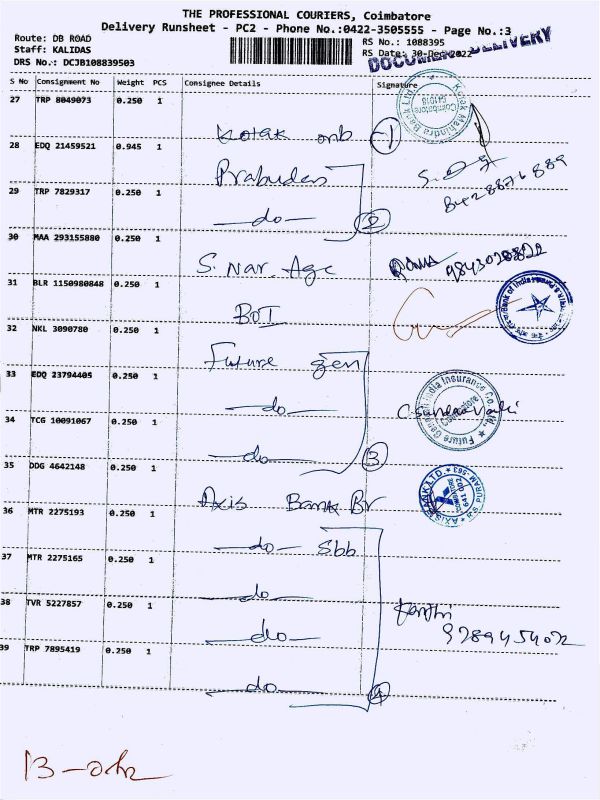 THE PROFESSIONAL COURIERS, Coimbatore
Delivery Runsheet - PC2 - Phone No.:0422-3505555 - Page No.:3
Route: DB ROAD
Staff: KALIDAS
DRS No.: DCJB108839503
RS No.: 1088395
RS Date: 30-Dec-2022
DOCUMENT DELIVERY
S No Consignment No Weight PCS Consignee Details Signature
27 TRP 8049073 0.250 1
Kotak Mahindra Bank Ltd. Coimbatore 641018
Kotak omb 1
28 EDQ 21459521 0.945 1
Prabudas
8428876889
29 TRP 7829317 0.250 1
do 2
30 MAA 293155880 0.250 1
S. Nar Age 9843028822
31 BLR 1150980848 0.250 1
BOI
Bank of India
32 NKL 3090780 0.250 1
Future gen
33 EDQ 23794405 0.250 1
do
Future Generali India Insurance Co. Ltd. Coimbatore
34 TCG 10091067 0.250 1
do 3
35 DDG 4642148 0.250 1
Axis Bank Br
AXIS BANK LTD. 641 002 R S PURAM-563
36 MTR 2275193 0.250 1
do Sbb
37 MTR 2275165 0.250 1
do
38 TVR 5227857 0.250 1
do
9789454072
39 TRP 7895419 0.250 1
do 4